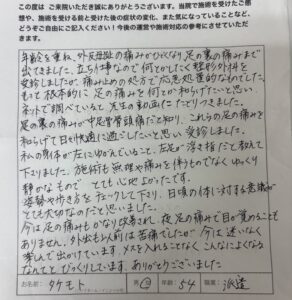 この度は ご来院いただき誠にありがとうございます。当院で施術をご感
想や、施術を受ける前と受けた後の症状の変化、また気になっていることなど、
どうぞご自由にご記入ください！今後の運営や施術対応の参考にさせていただ
きます。
年齢を重ね、外反母趾の痛みがひどくなり、足の裏の痛みまで
出てきました。立ち仕事なので何とかしたく整形外科を
受診しましたが、痛み止めの処方で応急処置的なものでした。
もっと根本的に足の痛みを何とか和らげたいと思い
ネットで調べていると先生の動画にたどりつきました。
足の裏の痛みが中足骨骨頭痛だと知り、これらの足の痛みを
和らげて日々快適に過ごしたいと思い
受診しました。
私の身体が左にゆがんでいること、左足が浮き指だと教えて
下さりました。施術も無理や痛みを伴うものでなくゆっくり
静かなもので とても心地よかったです。
姿勢や歩き方をチェックして下さり、日頃の体に対する意識が
とても大切なのだと思いました。
今は足の痛みもかなり改善され 夜足の痛みで目が覚めることも
ありません。外出も以前は苦痛でしたが 今は迷いなく
楽しんで出かけています。メスを入れることなく こんなによくなる
なんてと びっくりしています。ありがとうございました
名前 タケモト 男・女 年齢 54 職業 派遣